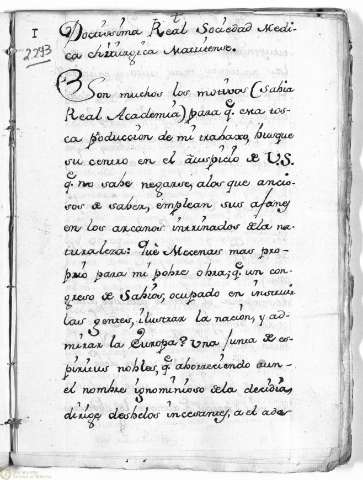 I
2293
Doctissima Real Sociedad Medi-
ca chirurgica Matritense.
Son muchos los motivos (Sabia
Real Academia) para q.e esta tos-
ca produccion de mi trabaxo, busque
su centro en el auspicio de V.S.
q.e no sabe negarse, alos que ancio-
sos de saber, emplean sus afanes
en los arcanos intrinados dela na-
turaleza: Què Mecenas mas pro-
prio para mi pobre obra; q.e un con-
greso de Sabios, ocupado en instruir
las gentes, ilustrar la nación, y ad-
mirar la Europa? Una junta de es-
piritus nobles, q.e aborreciendo aun-
el nombre ignominioso dela decidia,
dirige desbelos incesantes, a el ade-